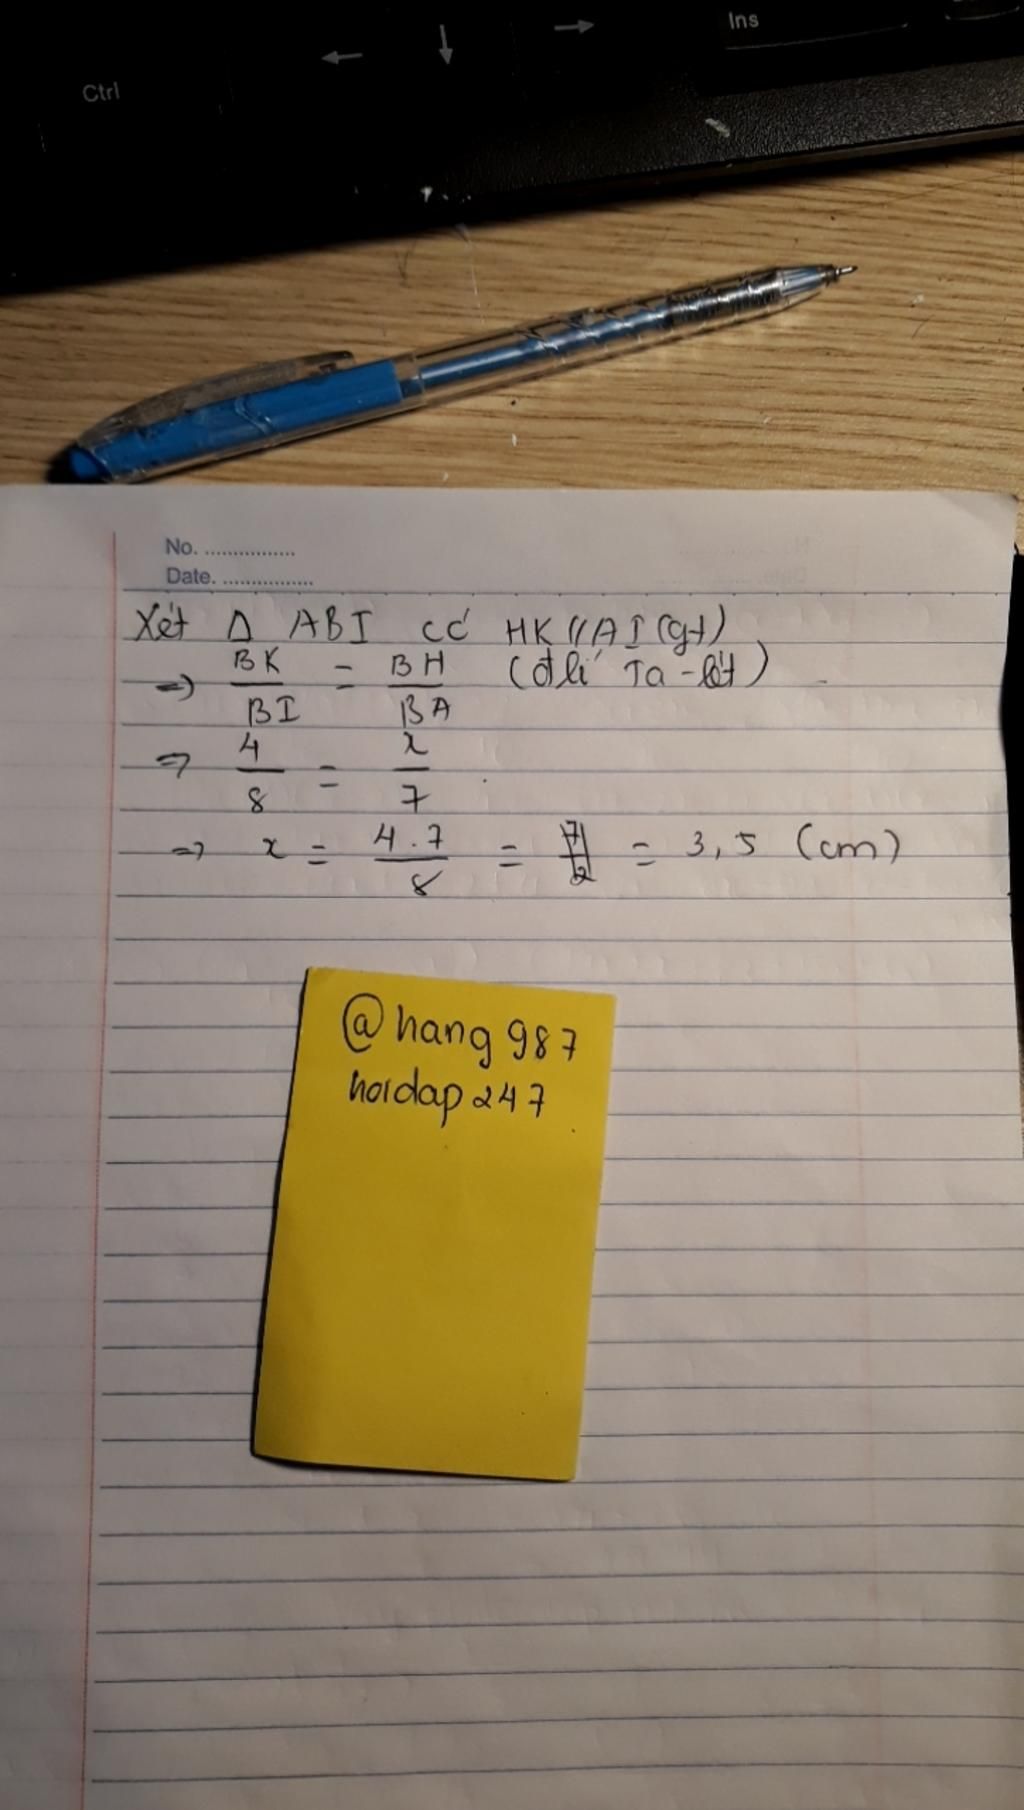 Ctrl ← ↓ → Ins
No. ................
Date. ................
Xét Δ ABI có HK // AI (gt)
=> BK/BI = BH/BA (đlí Ta-lét)
=> 4/8 = x/7
=> x = 4.7/8 = 7/2 = 3,5 (cm)
@hang987
hoidap247